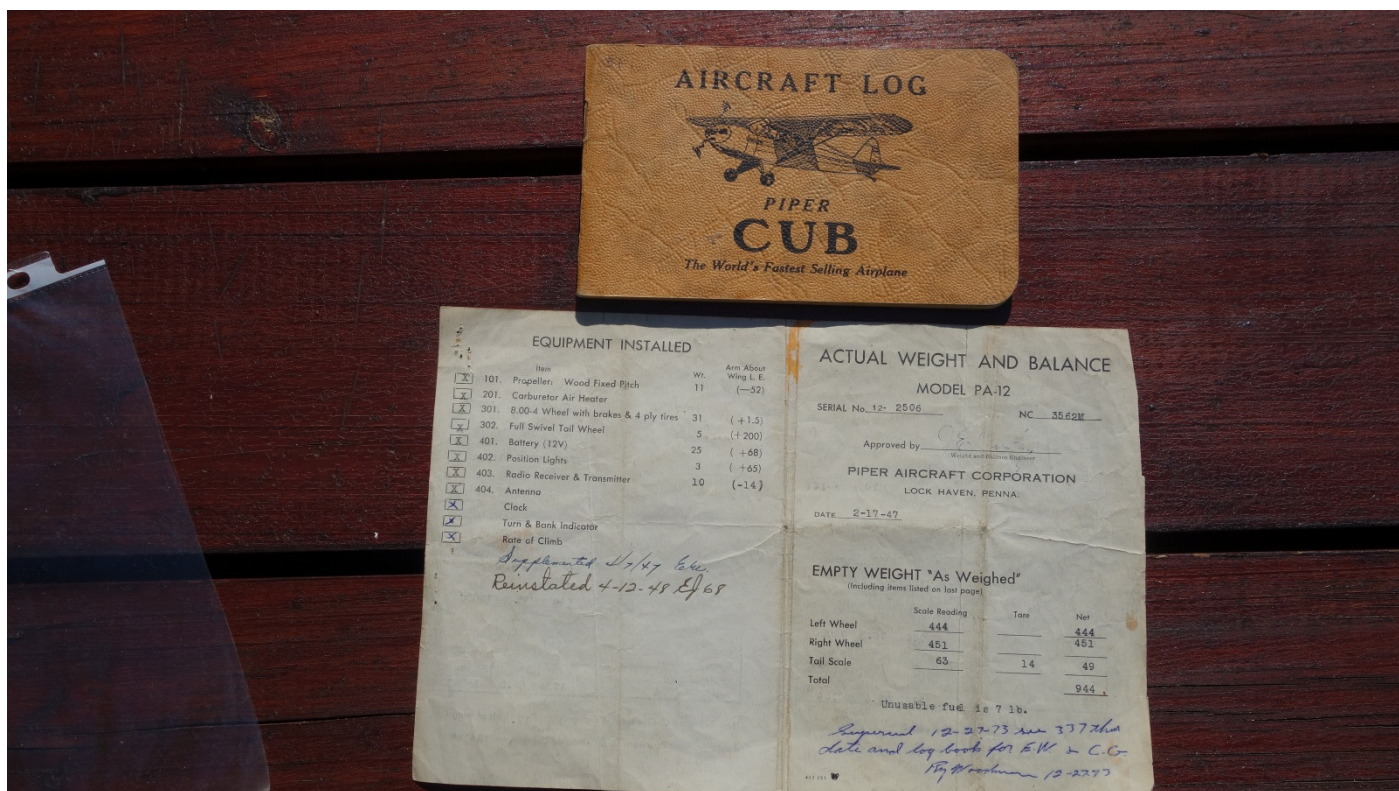 AIRCRAFT LOG
PIPER
CUB
The World's Fastest Selling Airplane
EQUIPMENT INSTALLED
Item Wt. Arm About Wing L. E.
X 101. Propeller: Wood Fixed Pitch 11 (—52)
X 201. Carburetor Air Heater
X 301. 8.00-4 Wheel with brakes & 4 ply tires 31 (+1.5)
X 302. Full Swivel Tail Wheel 5 (+200)
X 401. Battery (12V) 25 (+68)
X 402. Position Lights 3 (+65)
X 403. Radio Receiver & Transmitter 10 (-14)
X 404. Antenna
X Clock
X Turn & Bank Indicator
X Rate of Climb
Supplemented
Reinstated 4-12-48
ACTUAL WEIGHT AND BALANCE
MODEL PA-12
SERIAL No. 12- 2506 NC 3562M
Approved by
Weight and Balance Engineer
PIPER AIRCRAFT CORPORATION
LOCK HAVEN, PENNA.
DATE 2-17-47
EMPTY WEIGHT "As Weighed"
(Including items listed on last page)
Scale Reading Tare Net
Left Wheel 444 444
Right Wheel 451 451
Tail Scale 63 14 49
Total 944.
Unusable fuel is 7 lb.
12-27-73 see 337 this
date and log book for E.W. & C.G.
Woodman 12-27-73